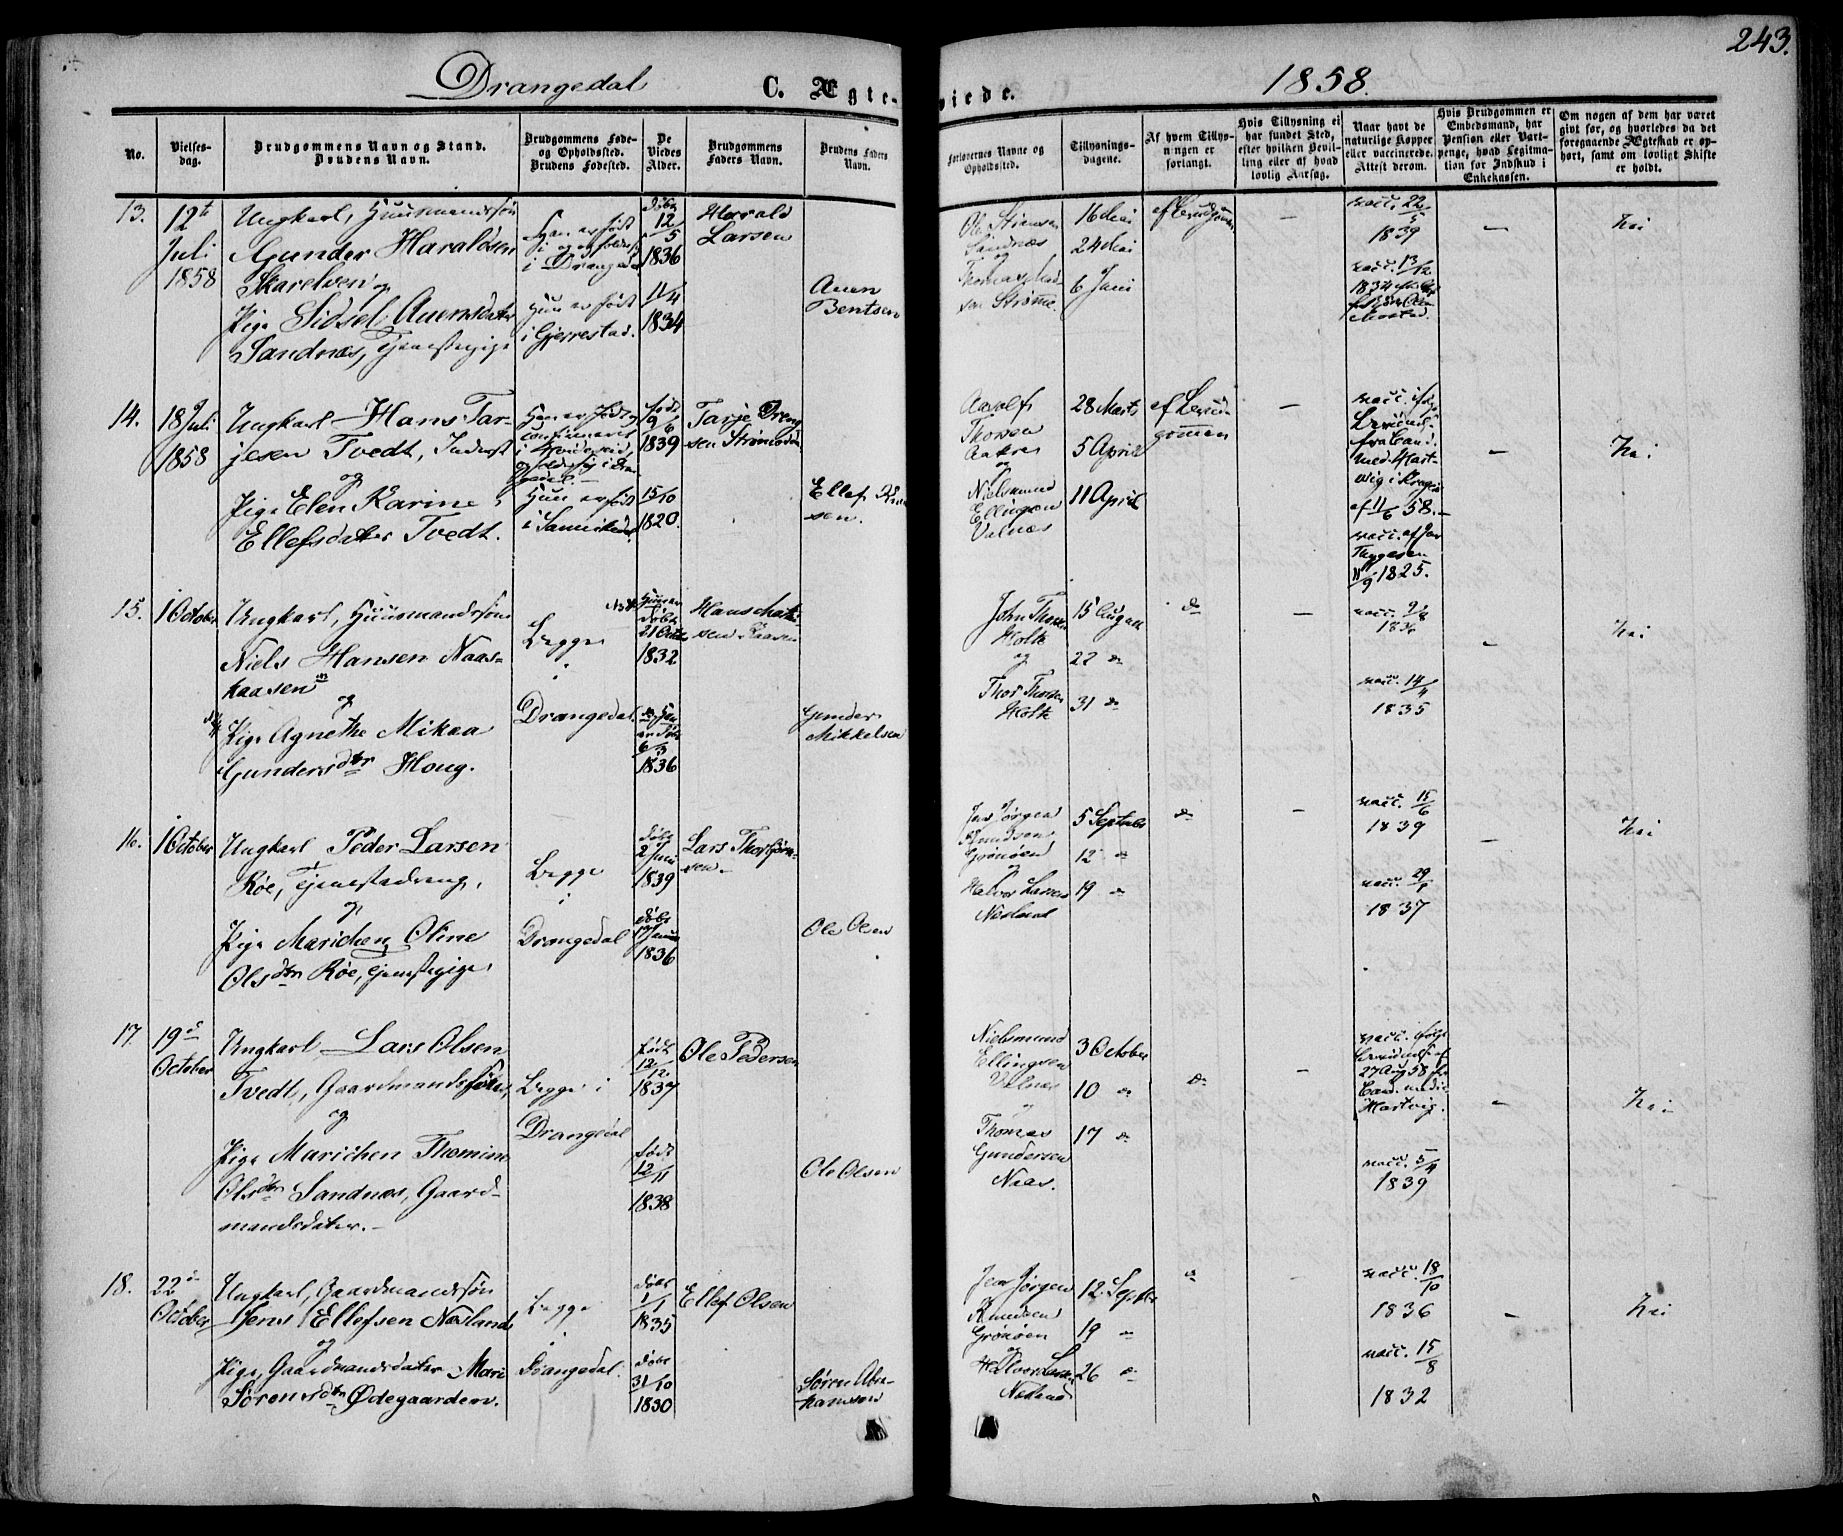 243.
Drangedal
C. Ægteviede.
1858.
No.
Vielsesdag.
Brudgommens Navn og Stand.
Brudens Navn.
Brudgommens Føde-
og Opholdssted.
Brudens Fødested.
De
Viedes
Alder.
Brudgommens
Faders Navn.
Brudens Faders
Navn.
Forlovernes Navne og
Opholdssted.
Tillysnings-
dagene.
Af hvem Tillys-
ningen er
forlangt.
Hvis Tillysning ei
har fundet Sted,
efter hvilken Bevil-
ling eller af hvad
lovlig Aarsag.
Naar havt de
naturlige Kopper
eller vaccinerede.
Attest derom.
Hvis Brudgommen er
Embedsmand, har
Pension eller Vart-
penge, hvad Legitima-
tion for Indskud i
Enkekassen.
Om nogen af dem har været
givt før, og hvorledes da det
foregaaende Ægteskab er op-
hørt, samt om lovligt Skifte
er holdt.
13.
12te
Juli
1858
Ungkarl, Huusmandssøn
Gunder Haraldsen
og
Pige Sidsel Auensdater
Sandnæs, Tjenestepige
Han er født
i og opholder sig
i Drangedal
Hun er født
i Gjerrestad.
døbt
12/5
1836
11/4
1834
Harald
Larsen
Auen
Bentsen
Sandnæs
og
16 Mai
24 Mai
6 Juni
af Brudgommen
–
vacc. 22/5
1839
vacc. 13/12
1834
–
Nei
14.
18 Juli
1858
Ungkarl Hans Tar-
jesen Tvedt, Inderst
og
Pige Elen Karine
Ellefsdater Tvedt.
Han er født og
confirmeret
i
Hun er født
i Sannikedal
født
9/6
1839
15/10
1820.
Tarje
Ellef
sen.
Thorsen
og
Nielsmund
Ellingsen
Valnæs
28 Marts
5 April
11 April
af Brud-
gommen
–
vacc. ifølge
fra Cand.
med. Hart-
vig i Kragerø
af 11/6 58.
vacc. af
Thygesen
11/9 1825.
–
Nei
15.
1 October
Ungkarl, Huusmandssøn
Niels Hansen Naas-
kaasen
og
Pige Agnethe Mikaa
Gundersdtr Houg.
Begge
i
Drangedal.
døbt
21 Octob
1832
døbt
6/3
1836
Hans
Gunder
Mikkelsen
John Thorsen
Holte
og
Thor Thorsen
Holte
15 August
22 do
31 do
do
–
vacc.
vacc. 14/4
1835
–
Nei
16.
1 October
Ungkarl Peder Larsen
Røe, Tjenestedreng,
og
Pige Marichen Oline
Olsdtr Røe, tjenestepige,
Begge
i
Drangedal
døbt
2 Juni
1839
døbt
1836
Lars Thorbjørn-
sen.
Ole Olsen
Jens Jørgen
Knudsen
Grønøen
og
Halvor Larsen
Næsland
5 Septbr
12 do
19 do
do
–
vacc. 15/6
1839
vacc.
1837
–
Nei
17.
19de
October
Ungkarl Lars Olsen
Tvedt, Gaardmandssøn,
og
Pige Marichen Thomine
Olsdtr Sandnæs, Gaard-
mandsdater.
Begge i
Drangedal
født
12/12
1837
født
12/11
1838
Ole Pedersen
Ole Olsen
Nielsmund
Ellingsen
Valnæs
og
Thomas
Gundersen
Naas.
3 October
10 do
17 do
do
–
vacc. ifølge
27 Aug 58 fra
Cand. medic.
Hartvig.
vacc. 5/4
1839
–
Nei
18.
22de
October
Ungkarl, Gaardmandssøn
Jens Ellefsen Næsland
og
Pige, Gaardmandsdater Mari
Sørensdtr Ødegaarden.
Begge
i
Drangedal.
døbt
1/1
1835
døbt
31/10
1830
Ellef Olsen
Søren Abra-
hamsen
Jens Jørgen
Knudsen
Grønøen
og
Halvor Larsen
Næsland
12 Septbr
19 do
26 do
do
vacc. 18/10
1836
vacc. 15/8
1832
–
Nei